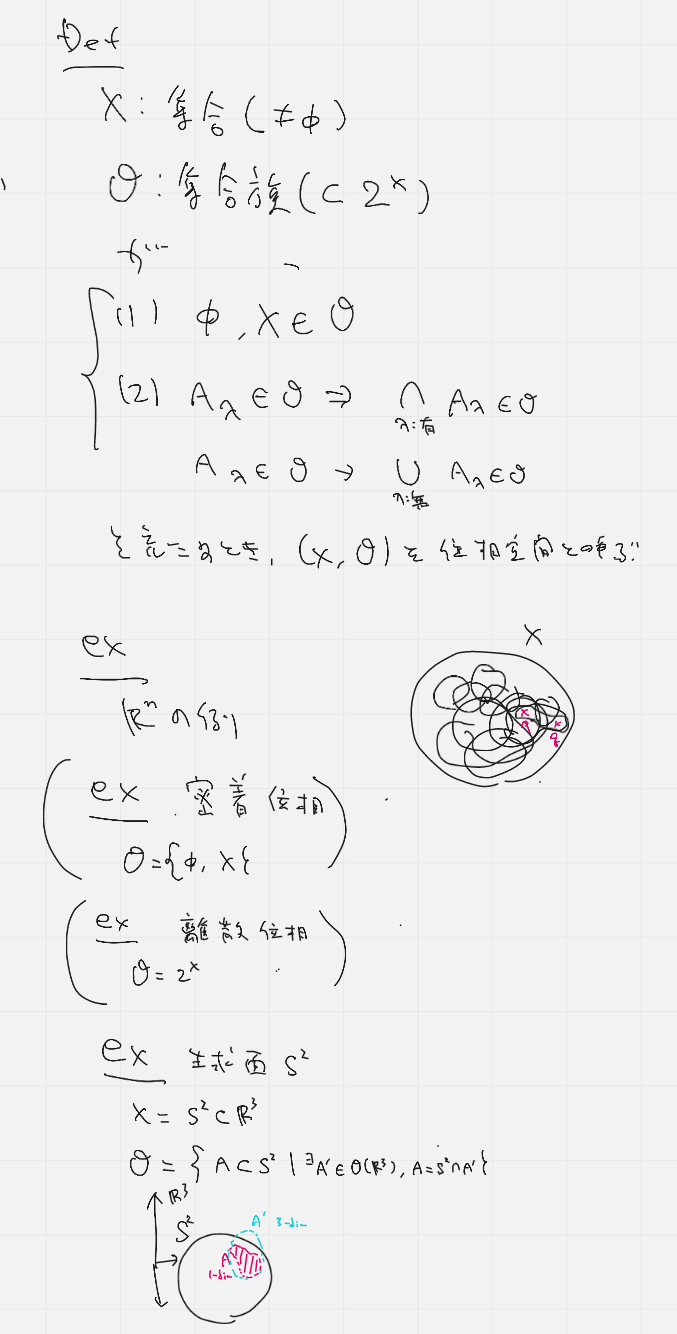 Def
X : 集合 (≠φ)
O : 集合族 (⊂ 2^X)
が
(1) φ, X ∈ O
(2) A_λ ∈ O ⇒ ∩_{λ:有} A_λ ∈ O
A_λ ∈ O → ∪_{λ:無} A_λ ∈ O
を満たすとき, (X, O) を位相空間と呼ぶ
ex
X
R^n の例
x
q
x
q
ex 密着位相
O = {φ, X}
ex 離散位相
O = 2^X
ex 球面 S^2
X = S^2 ⊂ R^3
O = { A ⊂ S^2 | ∃A' ∈ O(R^3), A = S^2 ∩ A' }
R^3
S^2
A' 3-dim
A
1-dim